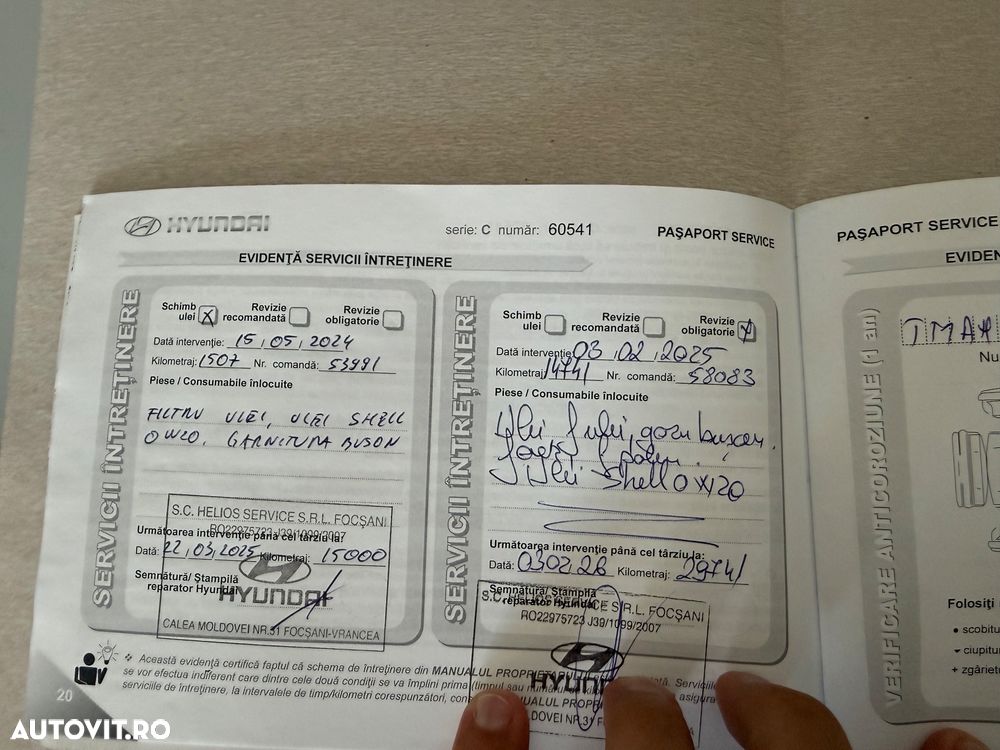 HYUNDAI
serie: C număr: 60541
PAŞAPORT SERVICE
EVIDENŢĂ SERVICII ÎNTREŢINERE
SERVICII ÎNTREŢINERE
Schimb ulei X
Revizie recomandată
Revizie obligatorie
Dată intervenţie: 15,05,2024
Kilometraj: 1507 Nr. comandă: 53991
Piese / Consumabile înlocuite
FILTRU ULEI, ULEI SHELL
0W20, GARNITURA BUSON
S.C. HELIOS SERVICE S.R.L. FOCŞANI
RO22975723 J39/1099/2007
Următoarea intervenţie până cel târziu la:
Dată: 22,03,2025 Kilometraj: 15000
Semnătură/ Ştampilă
reparator Hyundai
HYUNDAI
CALEA MOLDOVEI NR.31 FOCŞANI-VRANCEA
SERVICII ÎNTREŢINERE
Schimb ulei
Revizie recomandată
Revizie obligatorie X
Dată intervenţie: 03,02,2025
Kilometraj: 14741 Nr. comandă: 58083
Piese / Consumabile înlocuite
Ulei Shell 0W20
Următoarea intervenţie până cel târziu la:
Dată: 03 02 26 Kilometraj: 29741
Semnătură/ Ştampilă
reparator Hyundai
S.C. HELIOS SERVICE S.R.L. FOCŞANI
RO22975723 J39/1099/2007
HYUNDAI
DOVEI NR.31 F
Această evidenţă certifică faptul că schema de întreţinere din MANUALUL PROPRIETARULUI
se vor efectua indiferent care dintre cele două condiţii se va împlini prima (timpul sau
serviciile de întreţinere, la intervalele de timp/kilometri corespunzători,
20
PAŞAPORT SERVICE
EVIDEN
VERIFICARE ANTICOROZIUNE (1 an)
TMAH
Nu
Folosiţi
• scobitu
ciupitu
+ zgâriet
AUTOVIT.RO